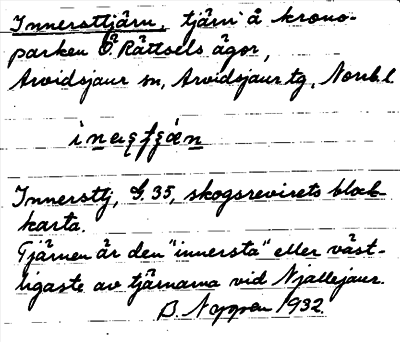 Innersttjärn, tjärn å krono-
parken Ö. Rättsels ägor,
Arvidsjaur sn, Arvidsjaur tg, Norrb. l.
Innersttj, G. 35, skogsrevirets block-
karta.
Tjärnen är den "innersta" eller väst-
ligaste av tjärnarna vid Njallejaur.
B. Nygren 1932.